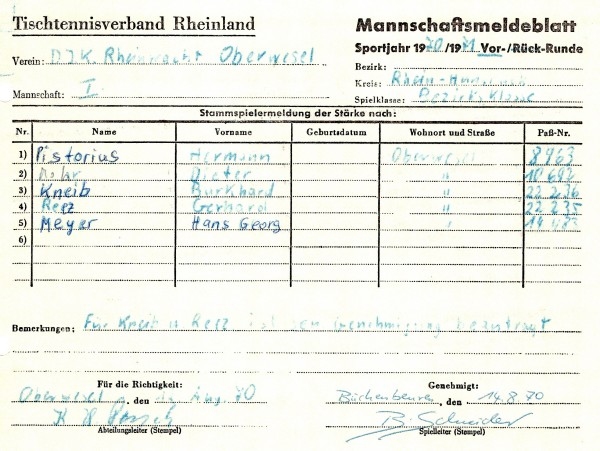 Tischtennisverband Rheinland
Mannschaftsmeldeblatt
Sportjahr 1970/1971 Vor-/Rück-Runde
Verein: DJK Rheinwacht Oberwesel
Bezirk:
Kreis: Rhein-Hunsrück
Mannschaft: I
Spielklasse: Bezirksklasse
Stammspielermeldung der Stärke nach:
Nr. Name Vorname Geburtsdatum Wohnort und Straße Paß-Nr.
1) Pistorius Hermann Oberwesel 8963
2) Mohr Dieter " 10 692
3) Kneib Burkhard " 22 236
4) Reez Gerhard " 22 235
5) Meyer Hans Georg "
6)
Bemerkungen: Für Kneib u Reez ist Genehmigung beantragt
Für die Richtigkeit: Genehmigt:
Oberwesel, den Aug. 70 Büchenbeuren, den 14.8.70
K H B. Schneider
Abteilungsleiter (Stempel) Spielleiter (Stempel)